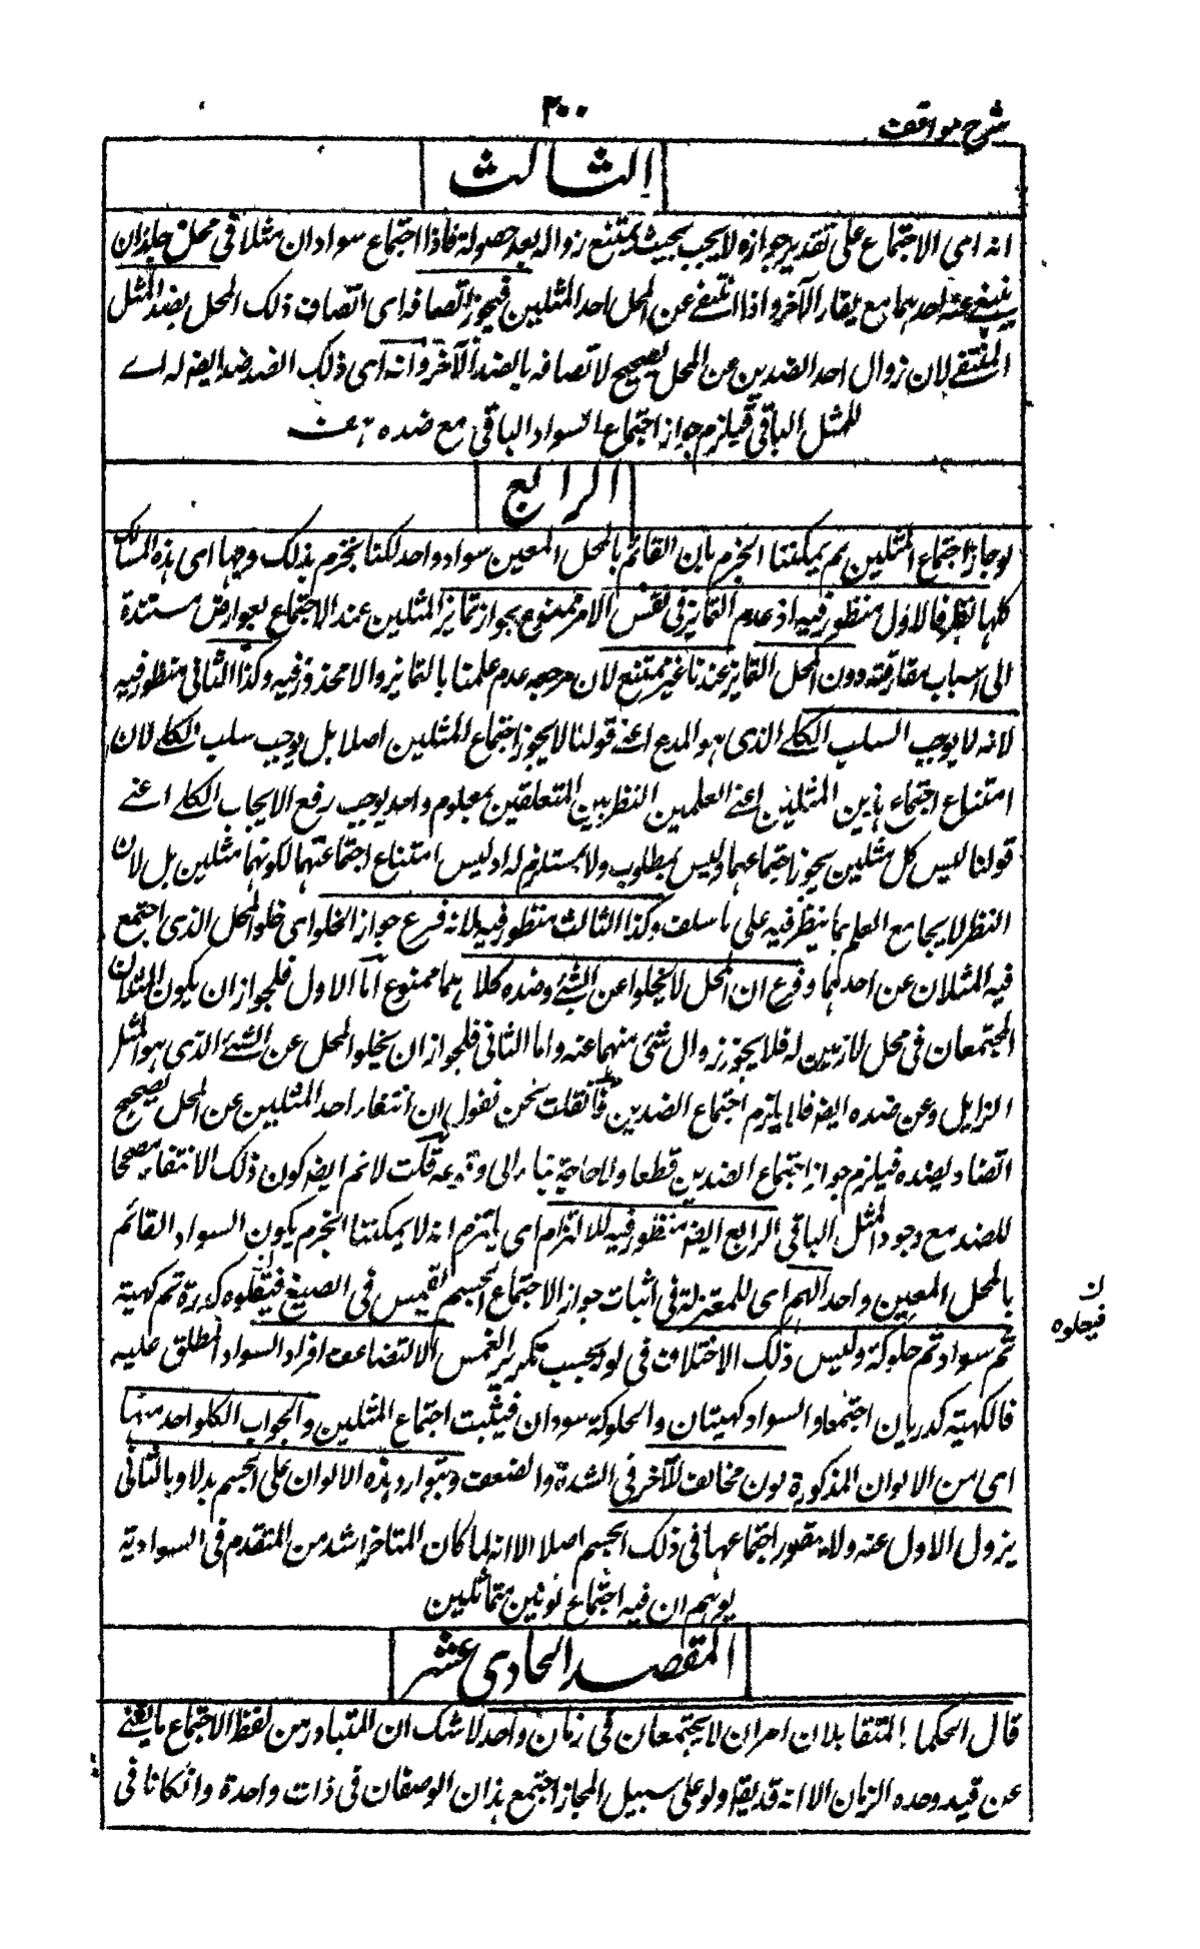 شرح مواقف
٣٠٠
الثالث
انه اى الاجتماع على تقدير جوازه لا يجب بحيث يمتنع زواله بعد حصوله فاذا اجتماع سوادان مثلا فى محل جاز ان
ينتفى عنه احدهما مع بقاء الآخر واذا انتفى عن المحل احد المثلين فيجوز اتصافه اى اتصاف ذلك المحل بضد المثل
المنتفى لان زوال احد الضدين عن المحل يصحح لاتصافه بالضد الآخر وانه اى ذلك الضد ضد ايضا له اے
للمثل الباقى فيلزم جواز اجتماع السواد الباقى مع ضده هف
الرابع
لو جاز اجتماع المثلين لم يمكننا الجزم بان القائم بالمحل المعين سواد واحد لكنا نجزم بذلك وفيها اى هذه المسالك
كلها نظر فالاول منظور فيه اذ عدم التمايز فى نفس الامر ممنوع بجواز تمايز المثلين عند الاجتماع بعوارض مستندة
الى اسباب مفارقة دون المحل التمايز عندنا غير ممتنع لان مرجعه عدم علمنا بالتمايز والا محذور فيه وكذا الثانى منظور فيه
لانه لا يوجب السلب الكلے الذى هو المدع اعنے قولنا لا يجوز اجتماع المثلين اصلا بل يوجب سلب الكلے لان
امتناع اجتماع هذين المثلين اعنے العلمين النظريين المتعلقين بمعلوم واحد يوجب رفع الايجاب الكلے اعنے
قولنا ليس كل مثلين يجوز اجتماعهما وليس بمطلوب ولا يستلزم له اذ ليس امتناع اجتماعهما لكونهما مثلين بل لان
النظر لا يجامع العلم بما ينظر فيه على ما سلف وكذا الثالث منظور فيه لانه فرع جواز الخلو اى خلو المحل الذى اجتمع
فيه المثلان عن احدهما وفرع ان المحل لا يخلوا عن الشے وضده كلا هما ممنوع اما الاول فلجواز ان يكون المثلان
المجتمعان فى محل لازمين له فلا يجوز زوال شئ منهما عنه واما الثانى فلجواز ان يخلو المحل عن الشئ الذى هو المثل
الزايل وعن ضده ايضا فلا يلزم اجتماع الضدين فانقلت نحن نقول ان انتفاء احد المثلين عن المحل يصحح
اتصافه بضده فيلزم جواز اجتماع الضدين قطعا ولا حاجة بنا الى وقوعه قلت لا نم ايضا كون ذلك الانتفاء مصححا
للضد مع وجود المثل الباقى الرابع ايضا منظور فيه للالتزام اى يلتزم انه لا يمكننا الجزم بكون السواد القائم
بالمحل المعين واحدا لهم اى للمعتزلة فى اثبات جواز الاجتماع الجسم يغمس فى الصبغ فيعلوه كدرة ثم كهبة
ثم سواد ثم حلوكة وليس ذلك الاختلاف فى لونه بحسب تكرير الغمس الا لتضاعف افراد السواد المطلق عليه
فالكهبة كدرتان اجتمعا والسواد كهبتان والحلوكة سوادان فيثبت اجتماع المثلين والجواب الكلو احد منها
اى من الالوان المذكورة لون مخالف للآخر فى الشدة والضعف ويتوارد هذه الالوان على الجسم بدلا وبالثانى
يزول الاول عنه ولا يتصور اجتماعها فى ذلك الجسم اصلا الا انه لما كان المتاخر اشد من المتقدم فى السوادية
يوهم ان فيه اجتماع لونين متماثلين
ن
فيعلوه
المقصد الحادى عشر
قال الحكما المتقابلان امران لا يجتمعان فى زمان واحد لا شك ان المتبادر من لفظ الاجتماع ما يغنے
عن قيد وحده الزمان الا انه قد يقال ولو على سبيل المجاز اجتمع هذان الوصفان فى ذات واحدة وانكانا فى